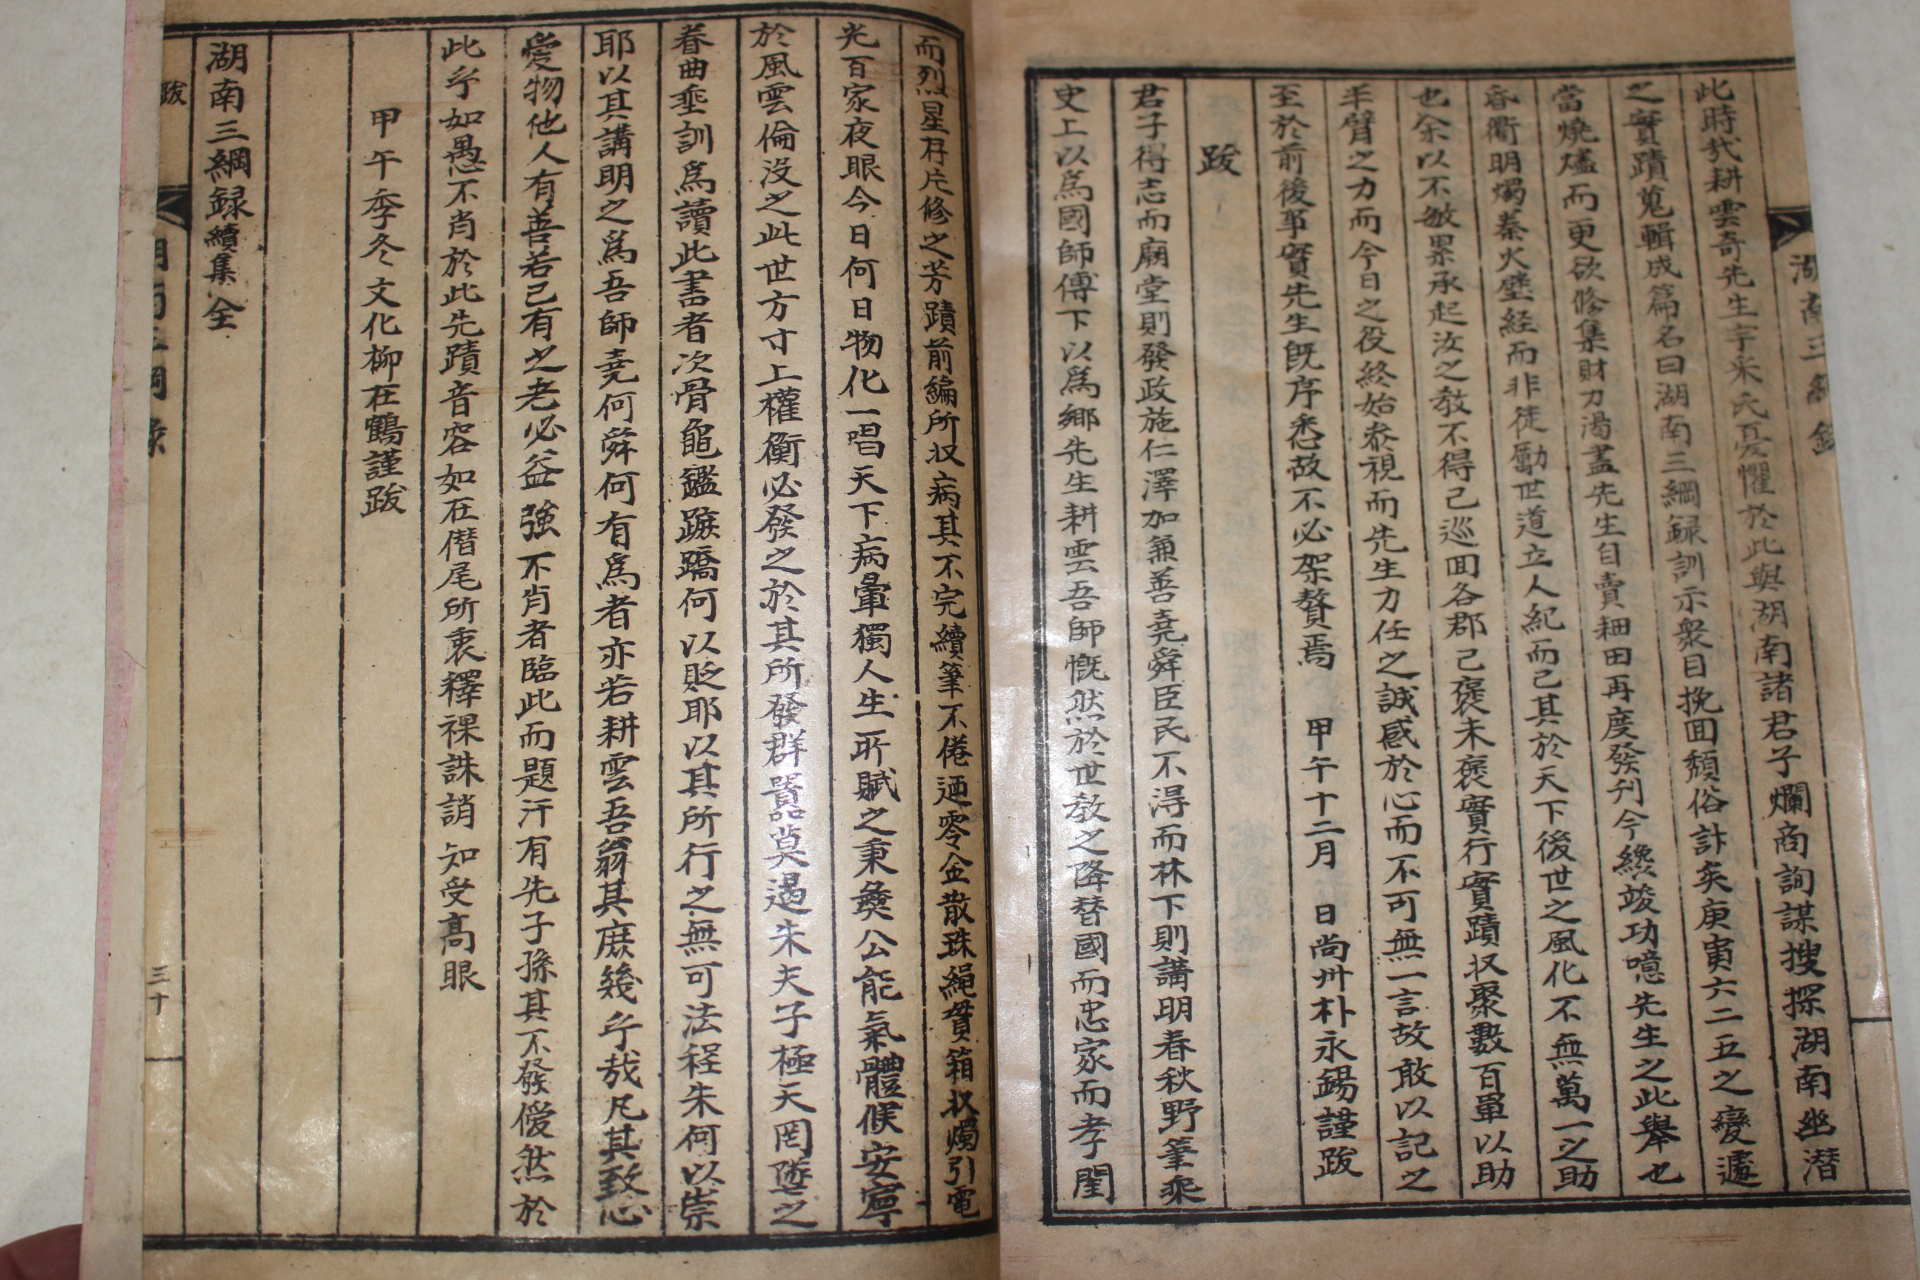 湖南三綱錄
此時哉耕雲奇先生宇采氏憂懼於此與湖南諸君子爛商詢謀搜探湖南幽潛
之實蹟蒐輯成篇名曰湖南三綱録訓示衆目挽回頹俗計矣庚寅六二五之變遽
當燒燼而更欲修集財力渴盡先生自賣耕田再度發刊今纔竣功噫先生之此舉也
昏衢明燭秦火壁経而非徒勵世道立人紀而已其於天下後世之風化不無萬一之助
也余以不敏累承起汝之敎不得已巡回各郡已褒未褒實行實蹟収聚數百單以助
半臂之力而今日之役終始叅視而先生力任之誠感於心而不可無一言故敢以記之
至於前後事實先生旣序悉故不必架贅焉　甲午十二月　日尙州朴永錫謹跋
跋
君子得志而廟堂則發政施仁澤加兼善堯舜臣民不得而林下則講明春秋野筆乘
史上以爲國師傅下以爲鄉先生耕雲吾師慨然於世敎之降替國而忠家而孝閨
而烈星存片修之芳蹟前編所収病其不完續筆不倦迺零金散珠繩貫箱収燭引電
光百家夜眼今日何日物化一唱天下病暈獨人生所賦之秉彜公能氣體候安寧
於風雲倫没之此世方寸上權衡必發之於其所發群囂莫遏朱夫子極天罔墜之
眷曲垂訓爲讀此書者次骨龜鑑蹠蹻何以貶耶以其所行之無可法程朱何以崇
耶以其講明之爲吾師堯何舜何有爲者亦若耕雲吾翁其庶幾乎哉凡其致心
愛物他人有善若己有之老必益強不肖者臨此而題汗有先子孫其不發僾然於
此乎如愚不肖於此先蹟音容如在僭尾所衷釋裸誅誚知受高眼
甲午季冬文化柳在鶴謹跋
湖南三綱録續集全
跋
湖南三綱錄
三十